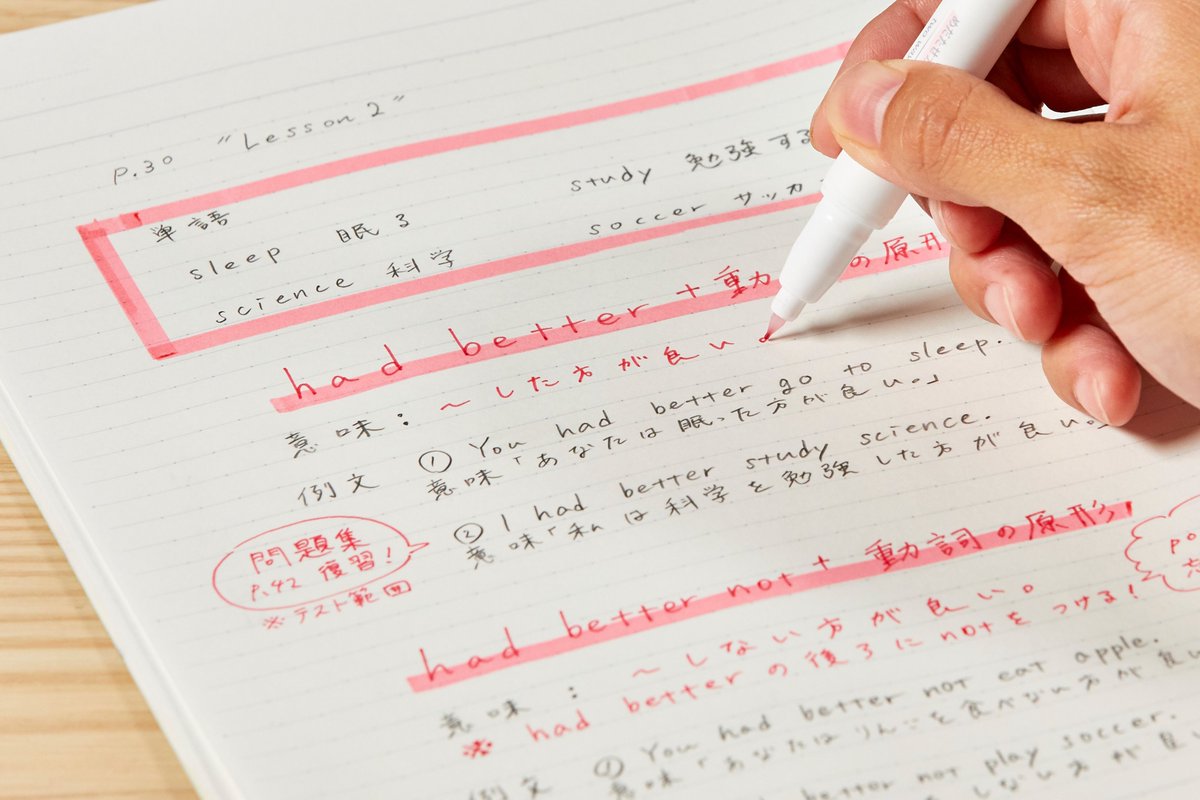 P.30 "Lesson 2"
単語
sleep 眠る study 勉強する
science 科学 soccer サッカ
had better + 動 の原形
意味: ～した方が良い。
例文 ① You had better go to sleep.
意味「あなたは眠った方が良い。」
② I had better study science.
意味「私は科学を勉強した方が良い。」
問題集
P.42 復習!
※テスト範囲
had better not + 動詞の原形
意味: ～しない方が良い。
※ had better の後ろに not をつける!
例文 ① You had better not eat apple.
意味「あなたはりんごを食べない方が良い
better not play soccer.
しない方が良い
めだたせ